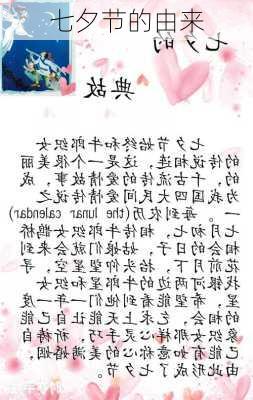 七夕节的由来
七夕的
典故
七夕节始终和牛郎织女
的传说相连，这是一个很美丽
的，千古流传的爱情故事，成
为我国四大民间爱情传说之
一。每到农历(the lunar calendar)
七月初七，相传牛郎织女鹊桥
相会的日子，姑娘们就会来到
花前月下，抬头仰望星空，寻
找银河两边的牛郎星和织女
星，希望能看到他们一年一度
的相会，乞求上天能让自己能
象织女那样心灵手巧，祈祷自
己能有如意称心的美满婚姻，
由此形成了七夕节。